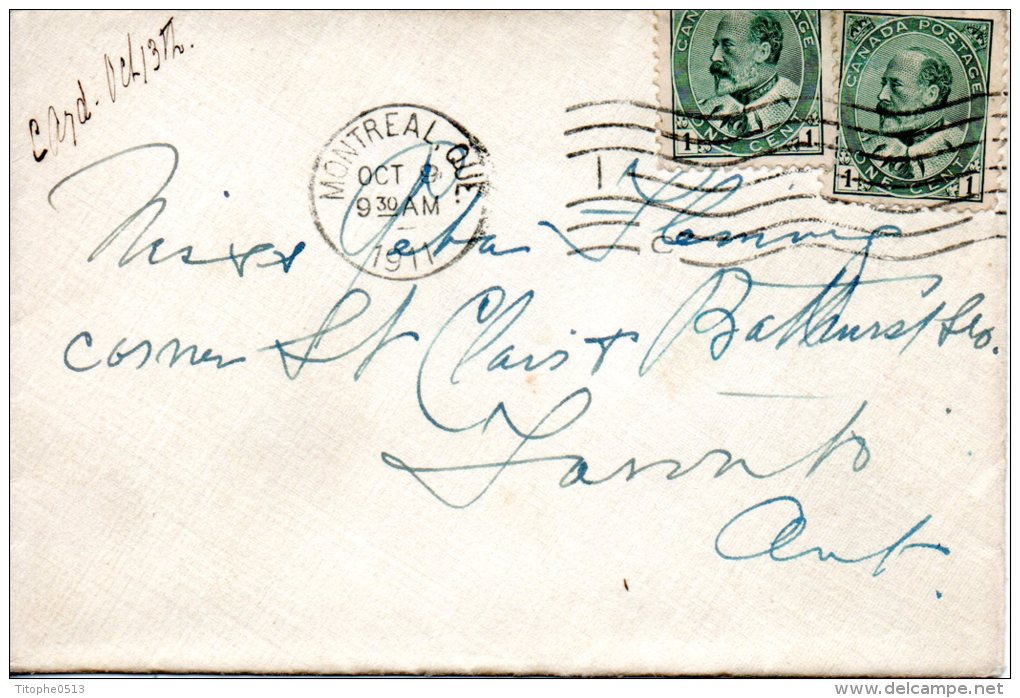 Card - Oct 13th.
CANADA POSTAGE
ONE CENT
1 1
CANADA POSTAGE
ONE CENT
1 1
MONTREAL, QUE.
OCT 9
9 30 AM
1911
Miss Fleming
corner St Clair & Bathurst Sts.
Toronto
Ont.
Titophe0513
delcampe.net